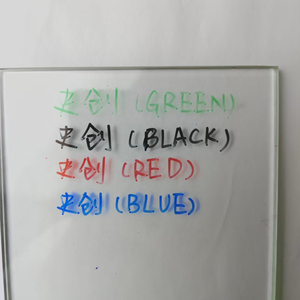 史创(GREEN)
史创(BLACK)
史创(RED)
史创(BLUE)